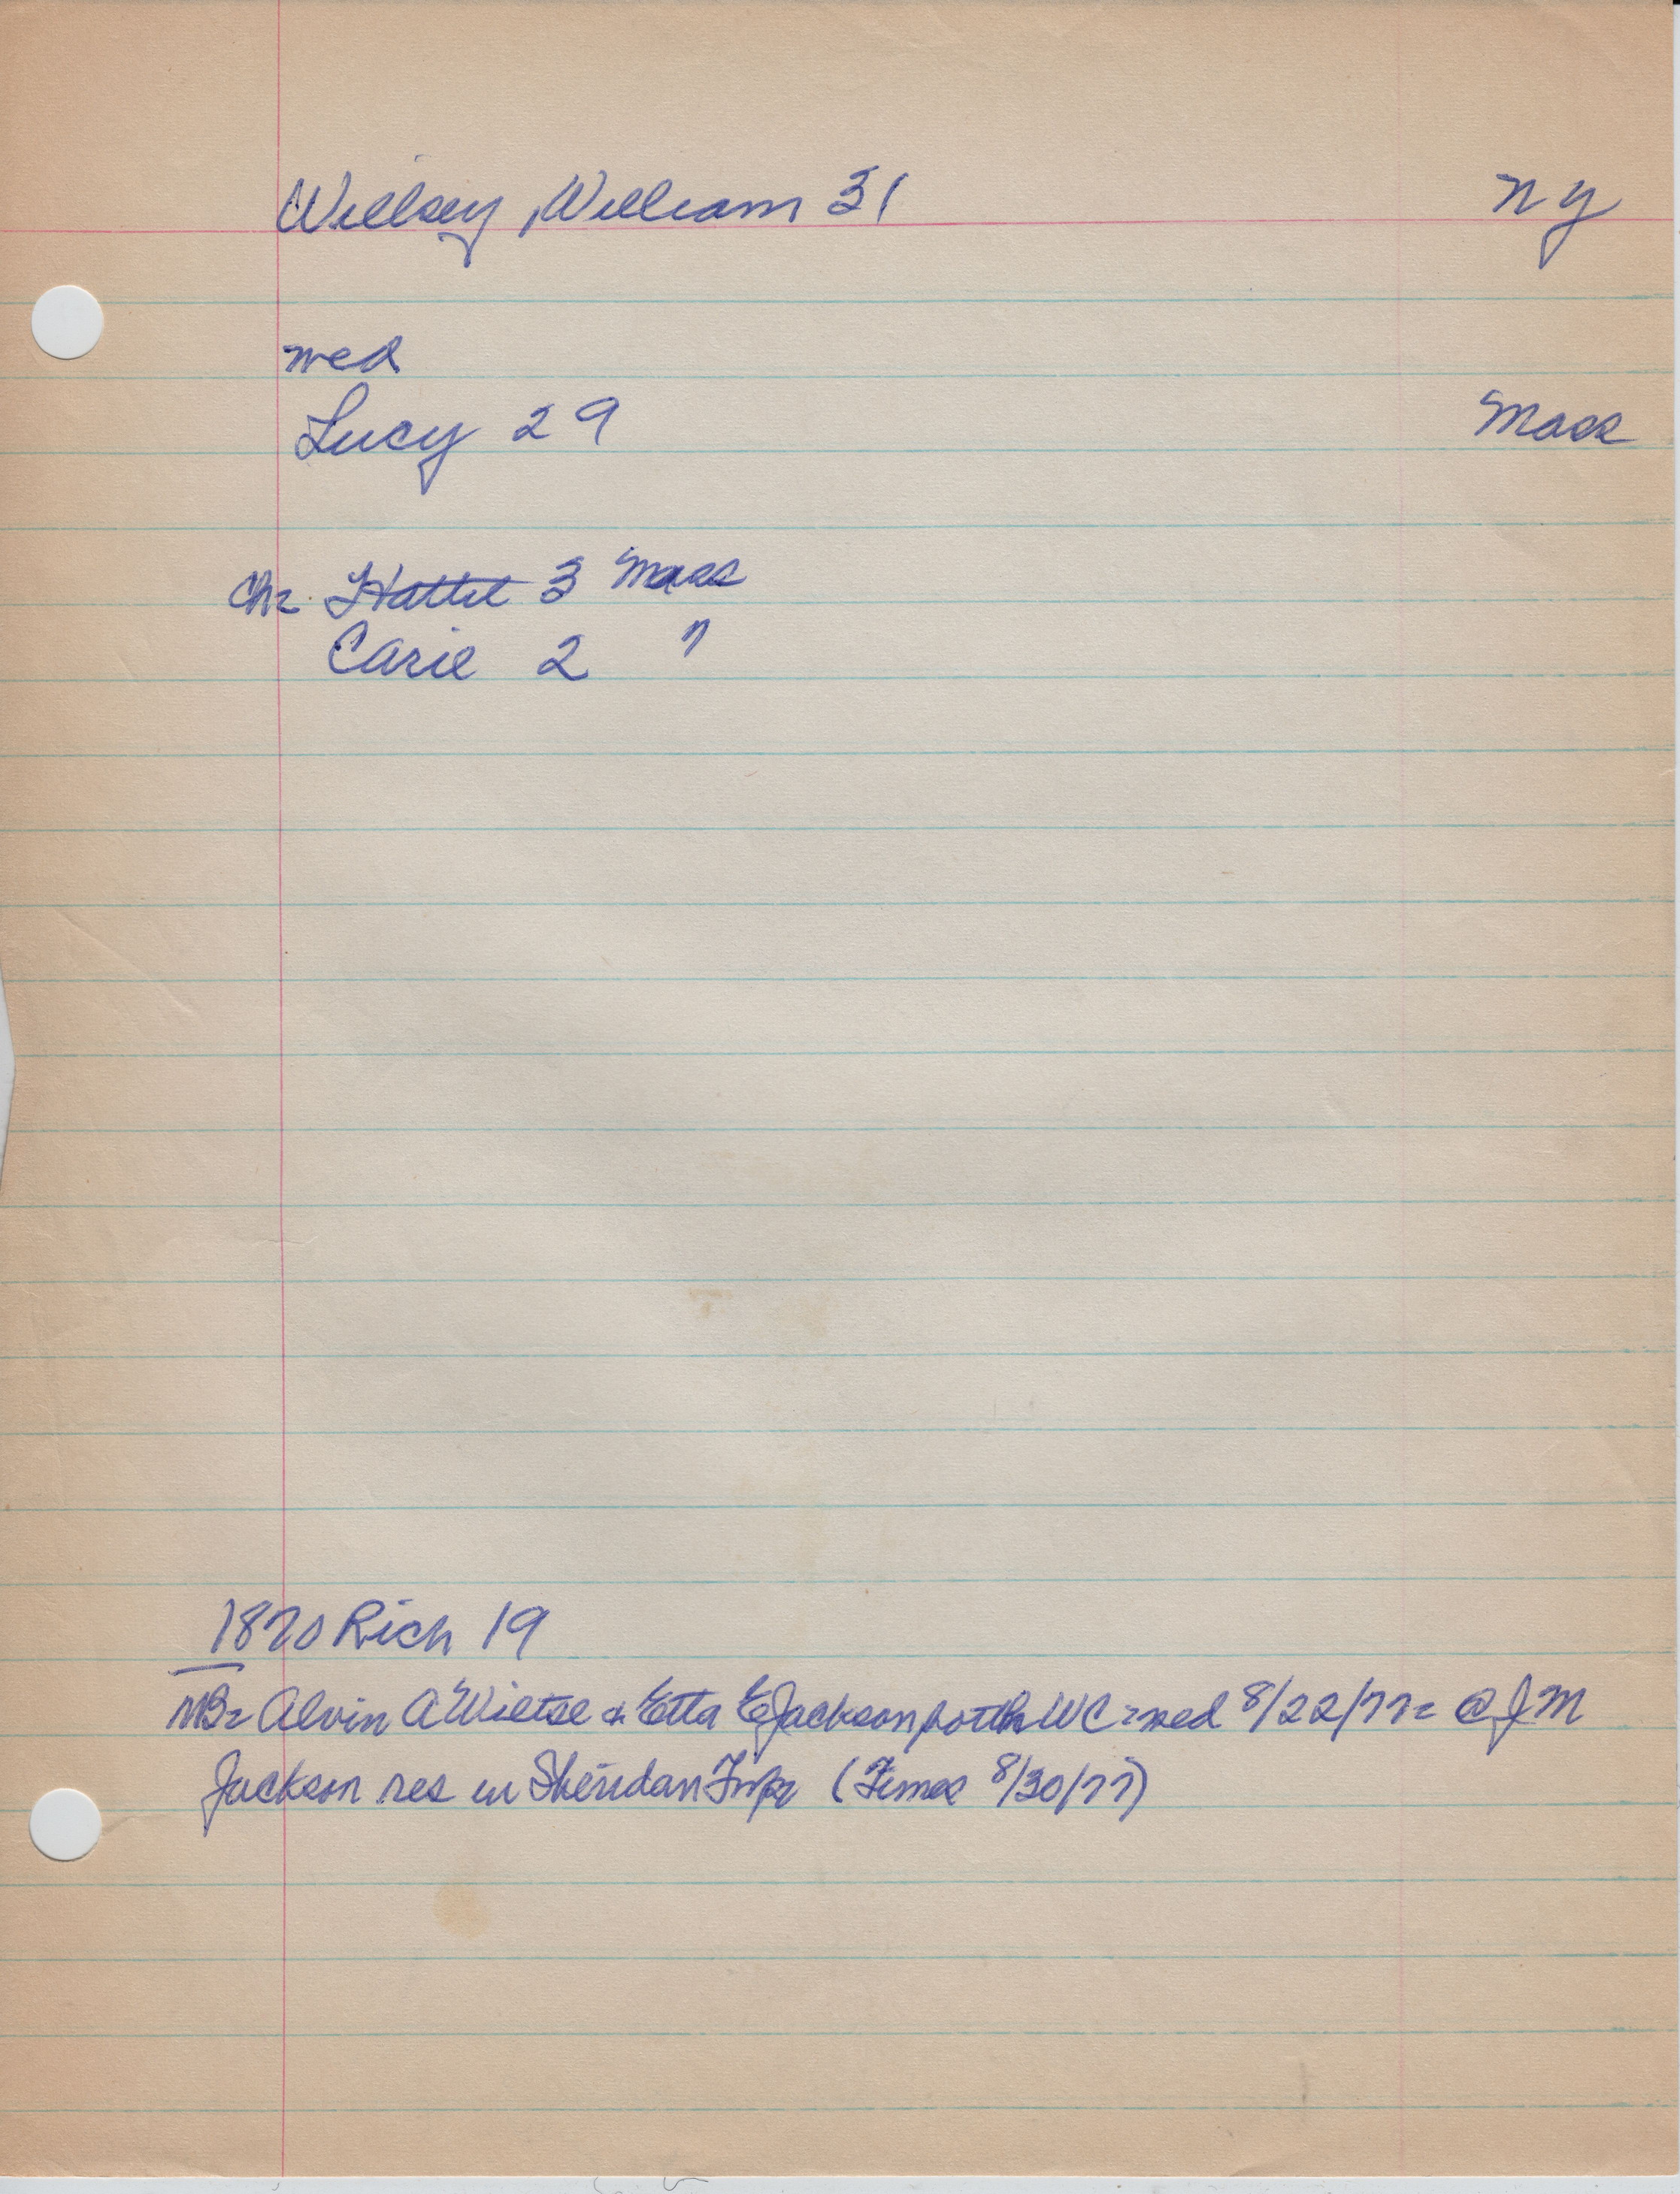 Willsey, William 31 NY
wed
Lucy 29 Mass
Ch= Hattie 3 Mass
Carie 2 "
1870 Rich 19
NB= Alvin A Wiltse & Etta E Jackson both WC = wed 8/22/77 = @ J M
Jackson res in Sheridan Twp (Times 8/30/77)